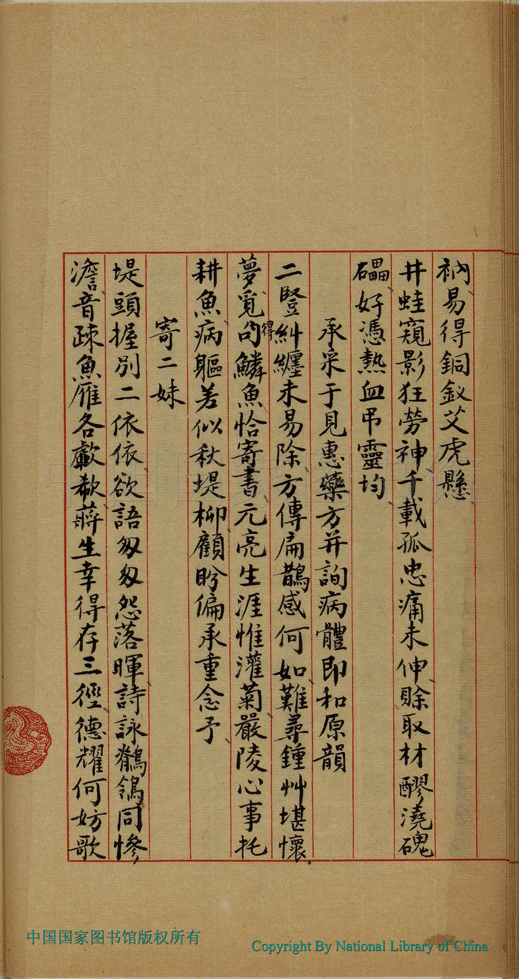 衲易得銅釵艾虎懸
井蛙窺影狂勞神千載孤忠痛未伸賒取村醪澆磈
礧好憑熱血弔靈均
承采于見惠藥方并詢病體即和原韻
二豎糾纏未易除方傳扁鵲感何如難尋鍾艸堪懷
夢覓得句鱗魚恰寄書元亮生涯惟灌菊嚴陵心事托
耕魚病軀若似秋堤柳顧盼偏承重念予
寄二妹
堤頭握別二依依欲語匆匆怨落暉詩詠鶺鴒同慘
澹音疎魚雁各歔欷蔣生幸得存三徑德耀何妨歌
中国国家图书馆版权所有
Copyright By National Library of China